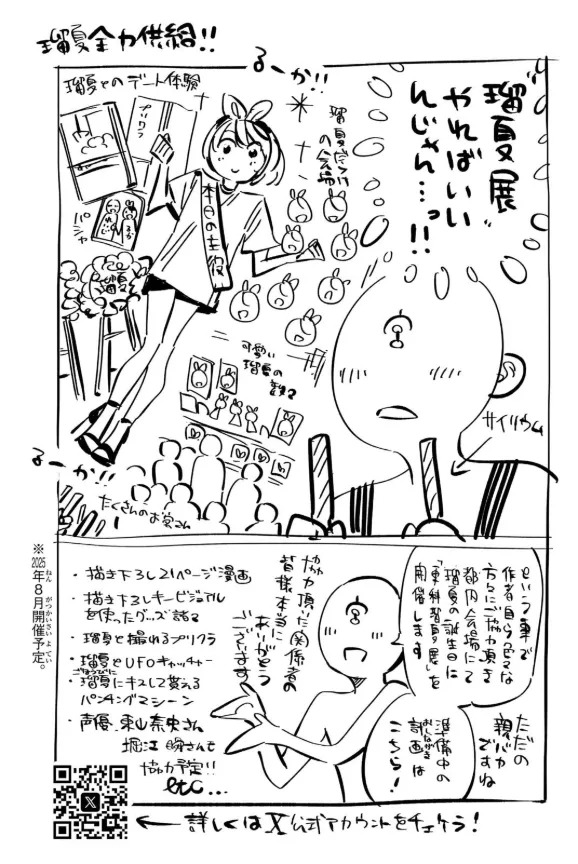 瑠夏全力供給!!
瑠夏展
やればいい
んじゃん…っ!!
るーか!!
瑠夏とのデート体験
プリクラ
瑠夏だらけ
の会場
本日の主役
パシャ
瑠夏
可愛い
瑠夏の
サイリウム
るーか!!
たくさんのお客さん
という事で
作者自ら色々な
方々にご協力頂き
都内会場にて
瑠夏の誕生日に
「更科瑠夏展」を
開催します
ただの
親バカ
ですね
準備中の
おしながき
計画は
こちら!
協力頂いた関係者の
皆様本当に
ありがとう
ございます
・描き下ろし21ページ漫画
・描き下ろしキービジュアル
を使ったグッズ諸々
・瑠夏と撮れるプリクラ
・瑠夏とUFOキャッチャー
ごほうびに
・瑠夏にキスして貰える
パンチングマシーン
・声優、東山奈央さん
堀江瞬さんも
協力予定!!
etc...
※2025年8月開催予定。
ねん がつかいさいよてい
X
←詳しくはX公式アカウントをチェケラ!